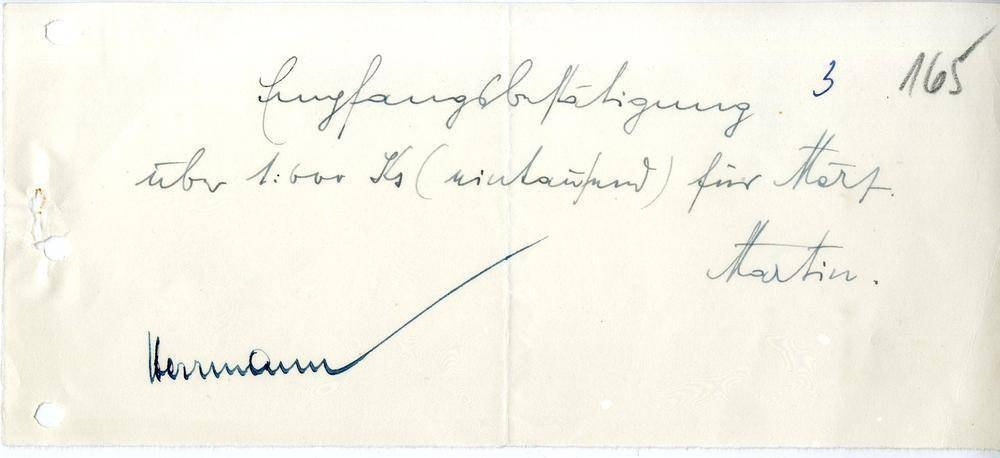 3 165
Empfangsbestätigung
über 1.000 Ks (eintausend) für März.
Martin.
Herrmann